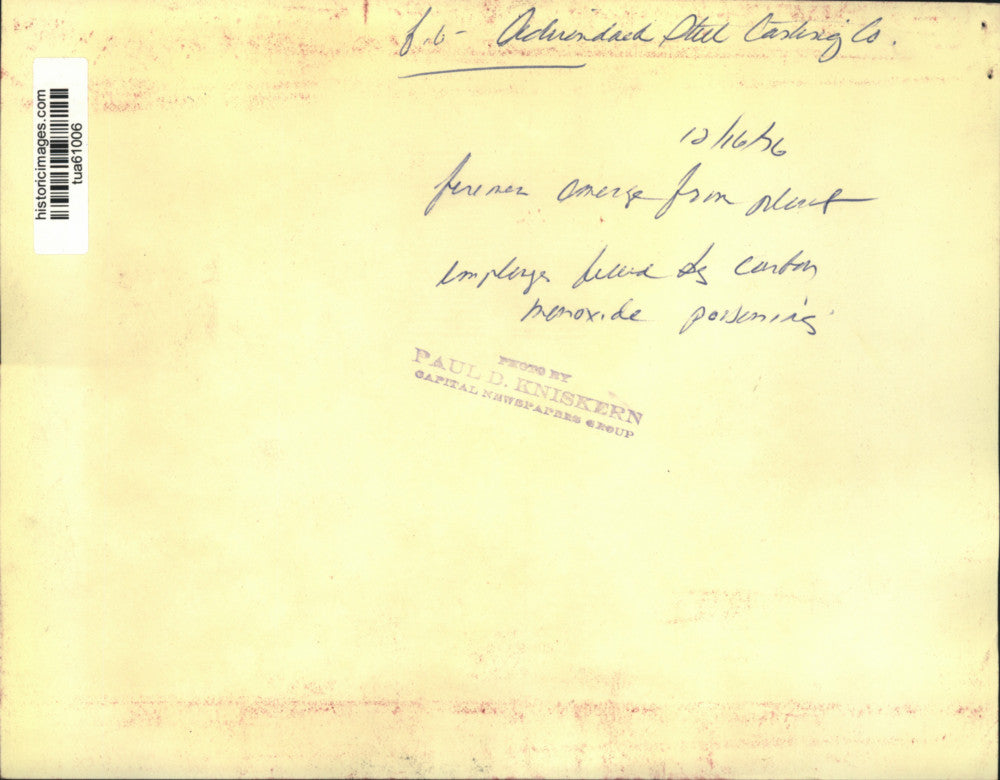 f.b- Adirondack Steel Casting Co.
12/16/76
firemen emerge from plant
employe felled by carbon
monoxide poisoning
PHOTO BY
PAUL D. KNISKERN
CAPITAL NEWSPAPERS GROUP
historicimages.com
tua61006